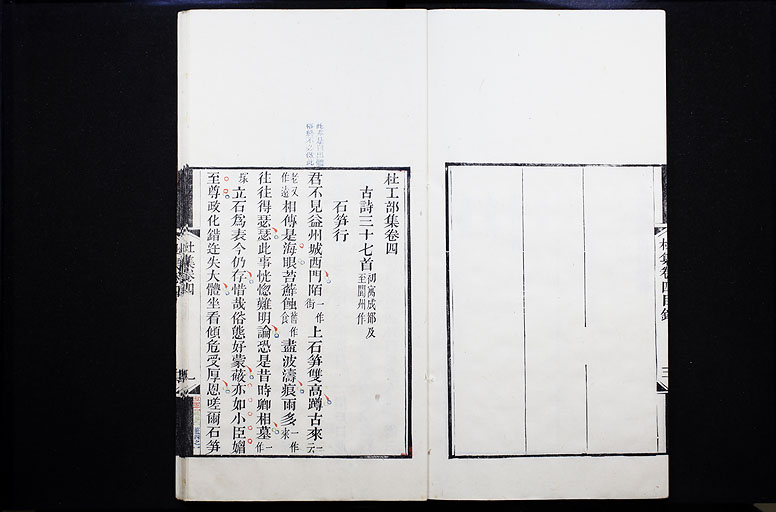 杜集卷四目錄
三
杜工部集卷四
古詩三十七首初寓成都及至閬州作
石笋行
君不見益州城西門陌一作街上石笋雙高蹲古來一云
老又作遠相傳是海眼苔蘚蝕舊作食盡波濤痕雨多一作來
往往得瑟瑟此事恍惚難明論恐是昔時卿相墓一作
塚立石爲表今仍存惜哉俗態好蒙蔽亦如小臣媚
至尊政化錯迕失大體坐看傾危受厚恩嗟爾石笋
杜集卷四
一